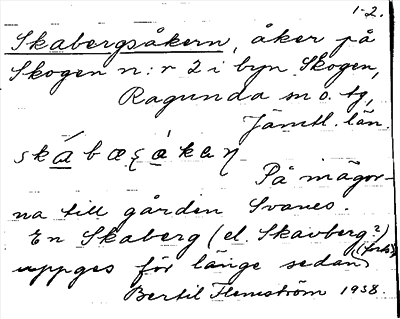 1-2.
Skabergsåkern, åker på
Skogen n:r 2 i byn Skogen,
Ragunda sn o. tg,
Jämtl. län
På inägor-
na till gården Svanes.
En Skaberg (el. Skavberg?)
uppges för länge sedan (forts)
Bertil Flemström 1938.